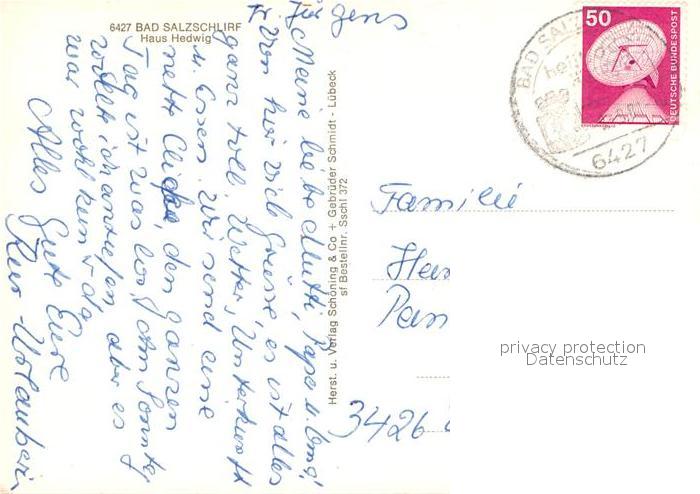 6427 BAD SALZSCHLIRF
Haus Hedwig
Meine liebe Mutti, Papa u. Oma,
Von hier viele Grüsse, es ist alles
ganz toll. Wetter, Unterkunft
u. Essen. Wir sind eine
nette Clique, den ganzen
Tag ist was los. Am Sonntag
wollte ich anrufen aber es
war wohl keiner da
Alles Gute Eure
Kur-Urlauberin
Fr. Jürgens
Herst. u. Verlag Schöning & Co + Gebrüder Schmidt - Lübeck
sf Bestellnr. Sschl 372
50
DEUTSCHE BUNDESPOST
BAD SALZ
6427
Familie
Han
Pan
3426
privacy protection
Datenschutz